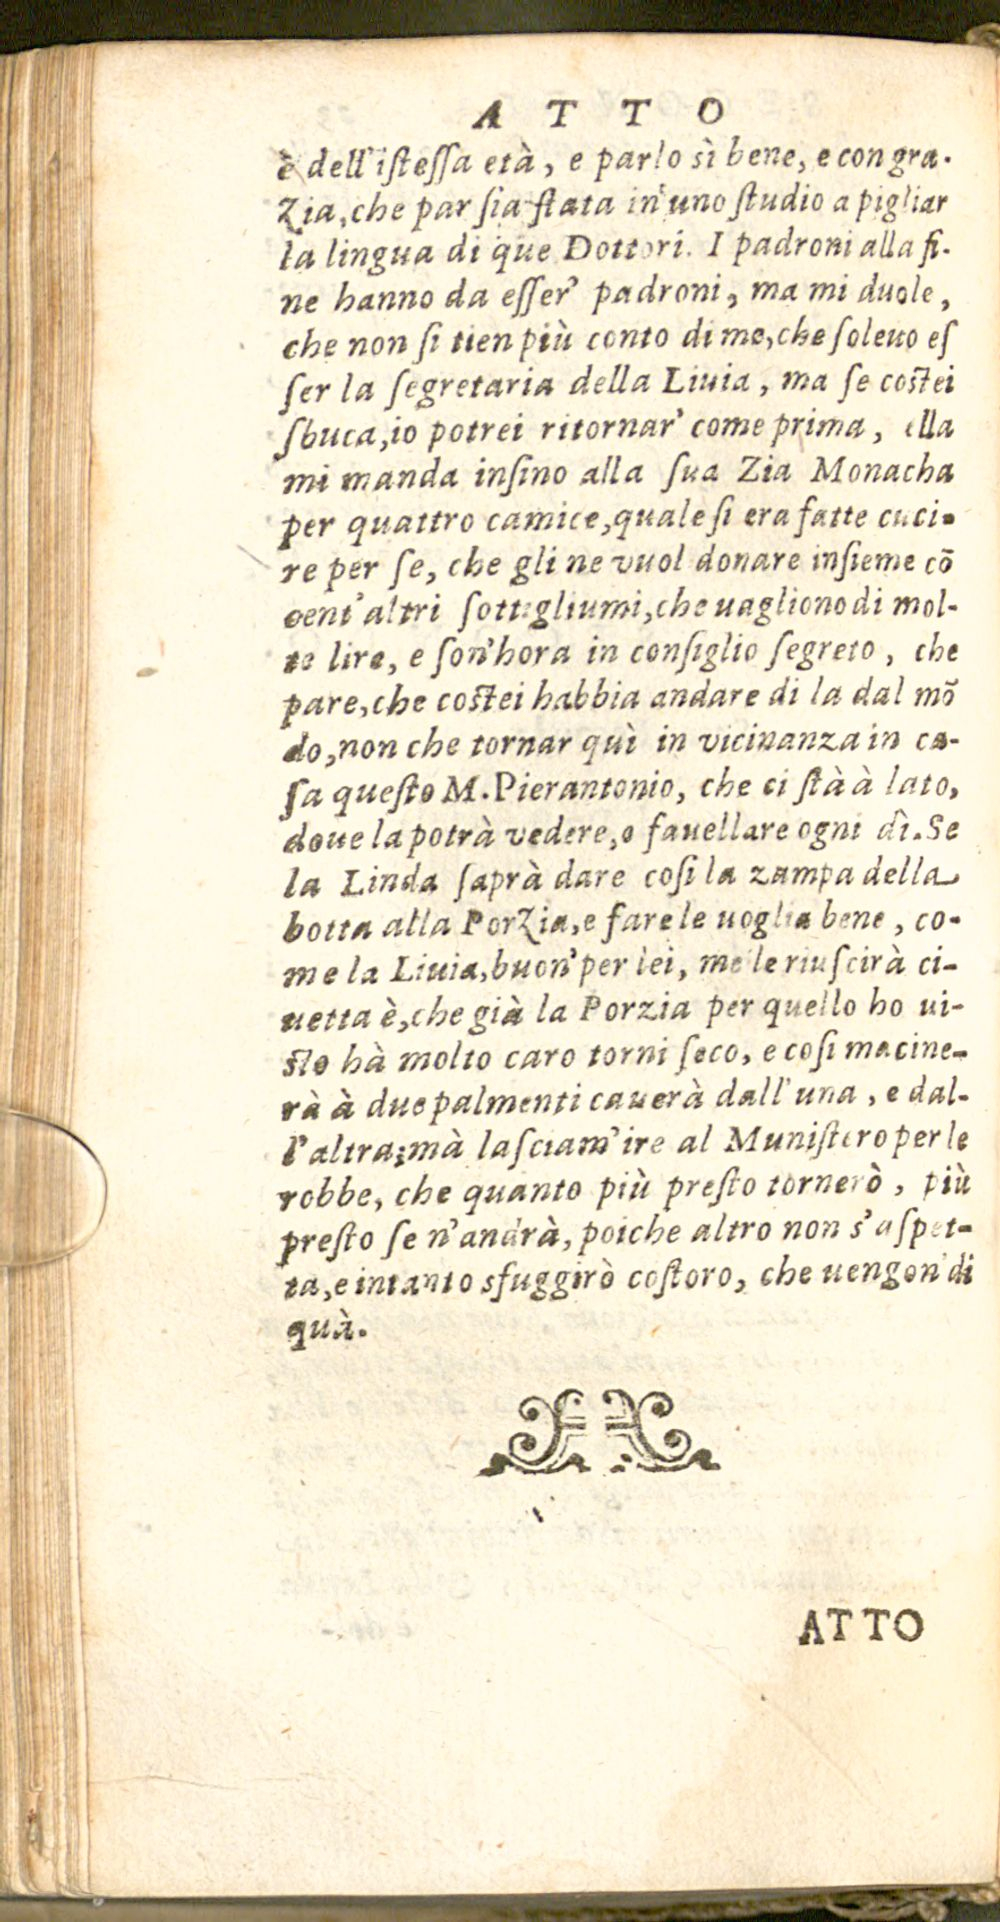 ATTO
è dell'iſteſſa età, e parlo sì bene, e con gra-
Zia, che par ſia ſtata in'uno ſtudio a pigliar
la lingua di que Dottori. I padroni alla fi-
ne hanno da eſſer' padroni, ma mi duole,
che non ſi tien più conto di me, che ſoleuo eſ
ſer la ſegretaria della Liuia, ma ſe coſtei
sbuca, io potrei ritornar' come prima, ella
mi manda inſino alla ſua Zia Monacha
per quattro camice, quale ſi era fatte cuci-
re per ſe, che gli ne vuol donare inſieme cō
cent'altri ſottigliumi, che uagliono di mol-
te lire, e ſon'hora in conſiglio ſegreto, che
pare, che coſtei habbia andare di la dal mō
do, non che tornar quì in vicinanza in ca-
ſa queſto M. Pierantonio, che ci ſtà à lato,
doue la potrà vedere, e fauellare ogni dì. Se
la Linda ſaprà dare coſi la zampa della
botta alla PorZia, e fare le uoglia bene, co-
me la Liuia, buon'per lei, me le riuſcirà ci-
uetta è, che già la Porzia per quello ho ui-
ſto hà molto caro torni ſeco, e coſi macine-
rà à due palmenti cauerà dall'una, e dal-
l'altra; mà laſciam'ire al Muniſtero per le
robbe, che quanto più preſto tornerò, più
preſto ſe n'andrà, poiche altro non s'aſpet-
ta, e intanto sfuggirò coſtoro, che uengon'di
quà.
ATTO